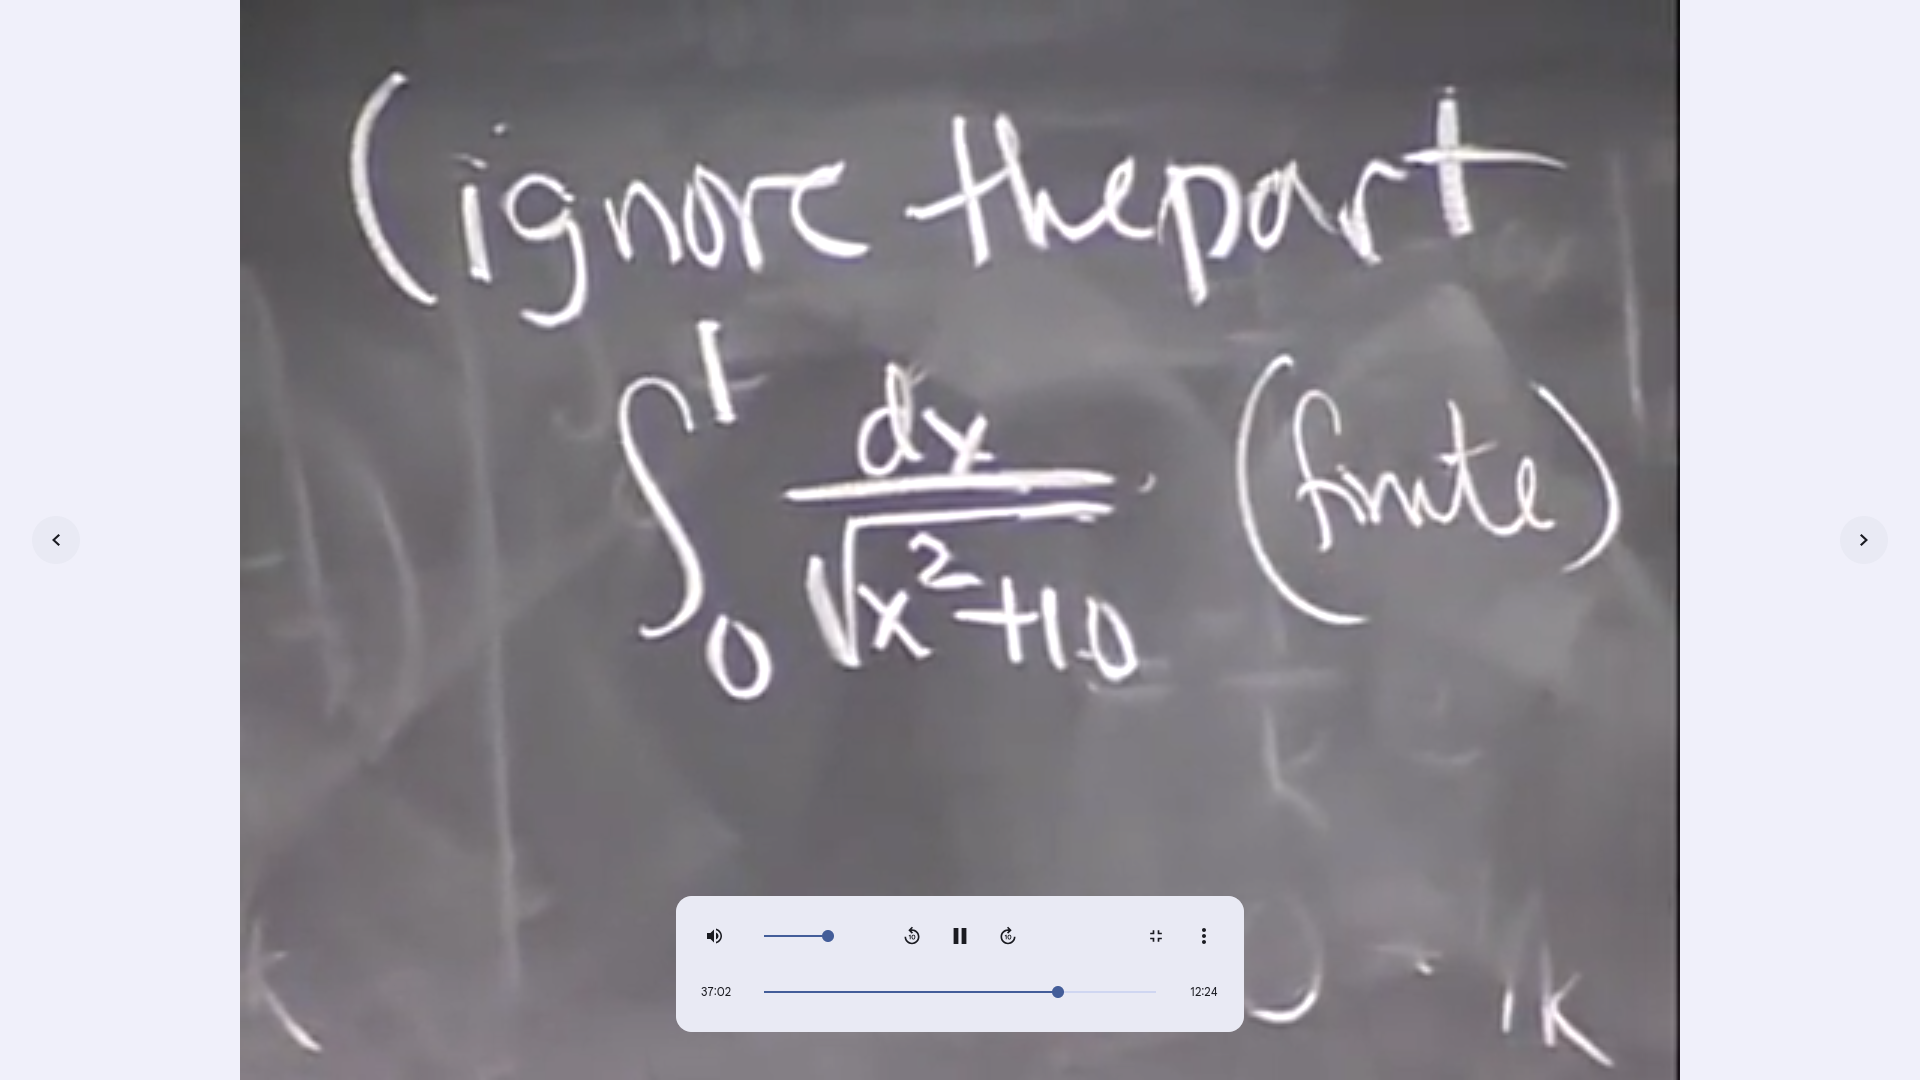 (ignore the part
∫₀¹ dx/√(x²+10) (finite)
37:02
12:24